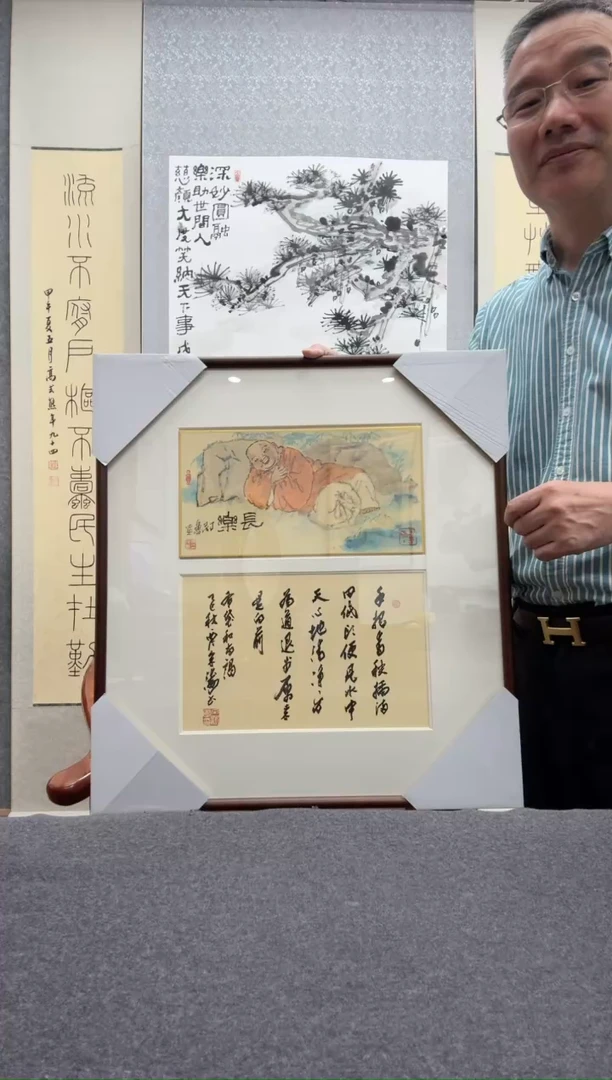 深妙圓融
樂助世間人
慈顏大度笑納天下事
流水不腐戶樞不蠹民生在勤
甲午夏五月高式熊年九十四
長樂
手把青秧插滿
田低頭便見水中
天心地清淨方
為道退步原來
是向前
布袋和尚偈